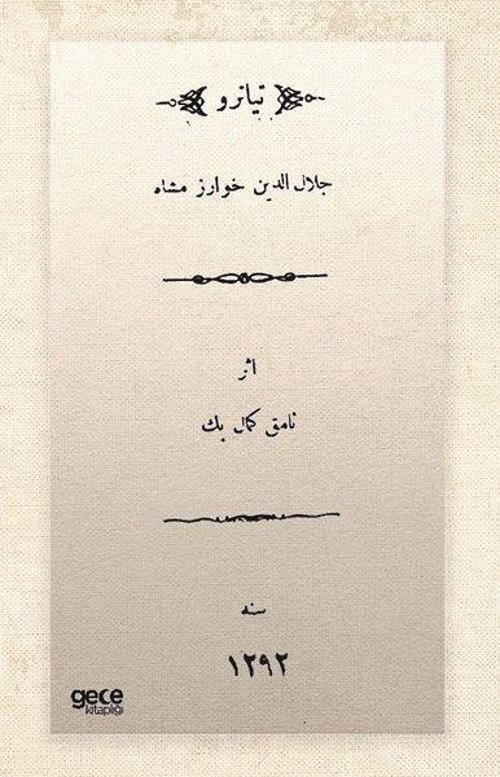 تياترو
جلال الدين خوارز مشاه
اثر
نامق كمال بك
سنه
١٢٩٢
gece
kitaplığı